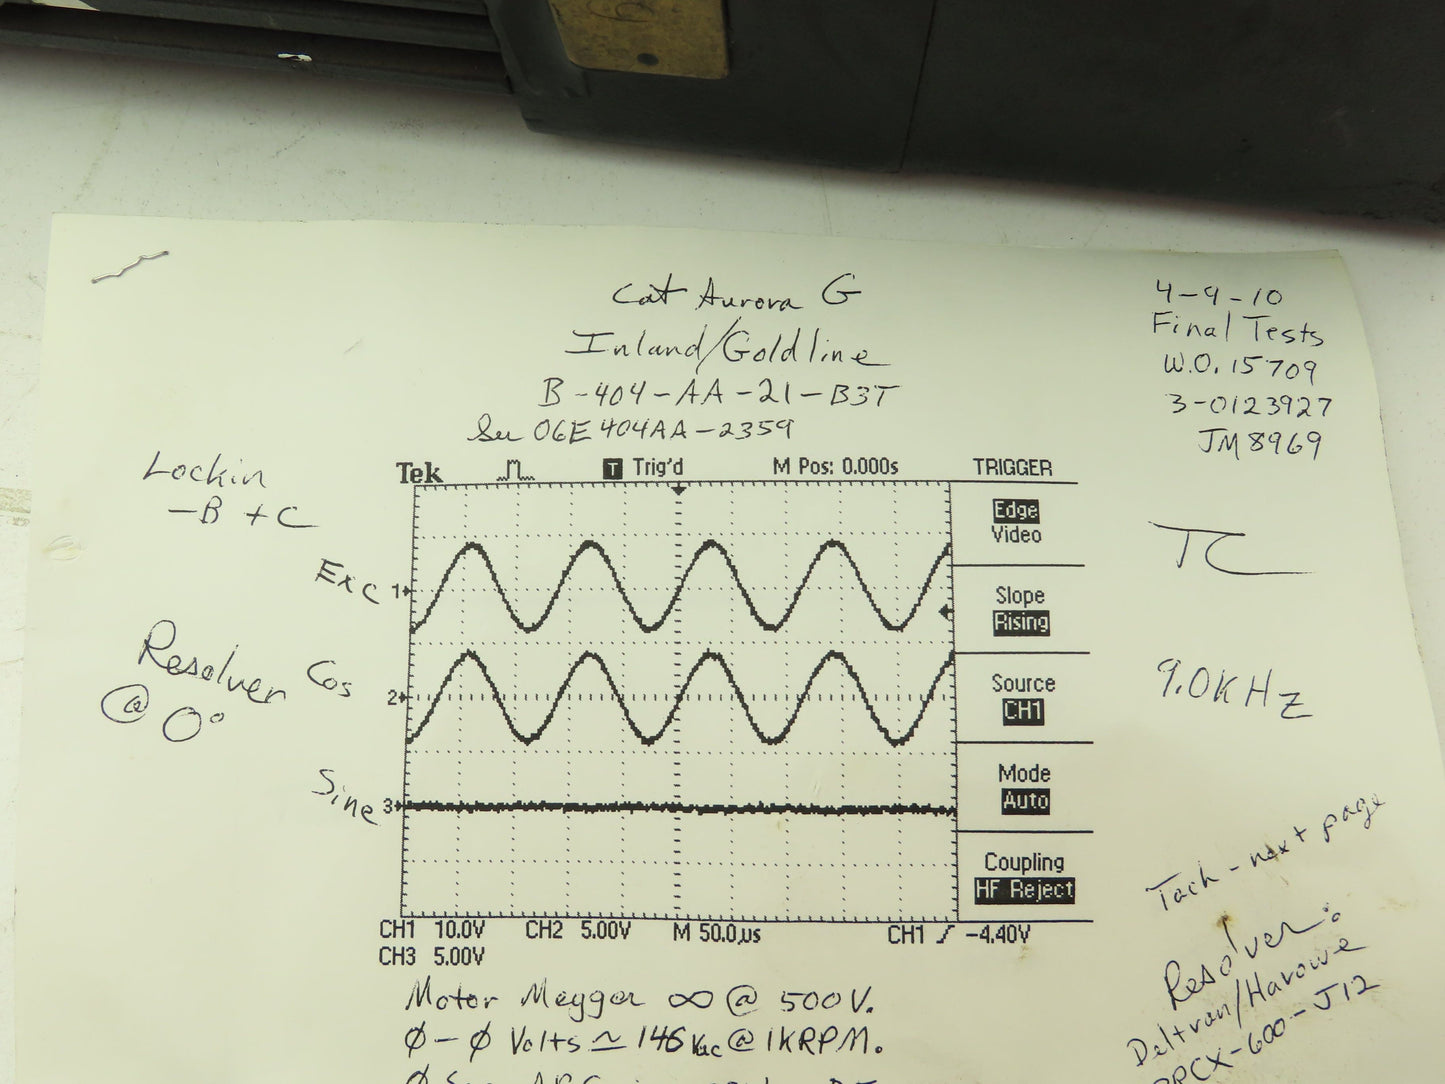 Cat Aurora G
Inland/Goldline
B-404-AA-21-B3T
Ser 06E404AA-2359
4-9-10
Final Tests
W.O. 15709
3-0123927
JM8969
Lockin
-B +C
Exc
Resolver
@ 0°
Cos
Sine
Tek
T Trig'd
M Pos: 0.000s
TRIGGER
Edge
Video
Slope
Rising
Source
CH1
Mode
Auto
Coupling
HF Reject
1
2
3
CH1 10.0V
CH2 5.00V
M 50.0µs
CH1
-4.40V
CH3 5.00V
TC
9.0KHz
Tach - next page
Resolver:
Deltran/Harowe
-600-J12
Motor Megger ∞ @ 500V.
Ø-Ø Volts ≃ 146 Vac @ 1KRPM.